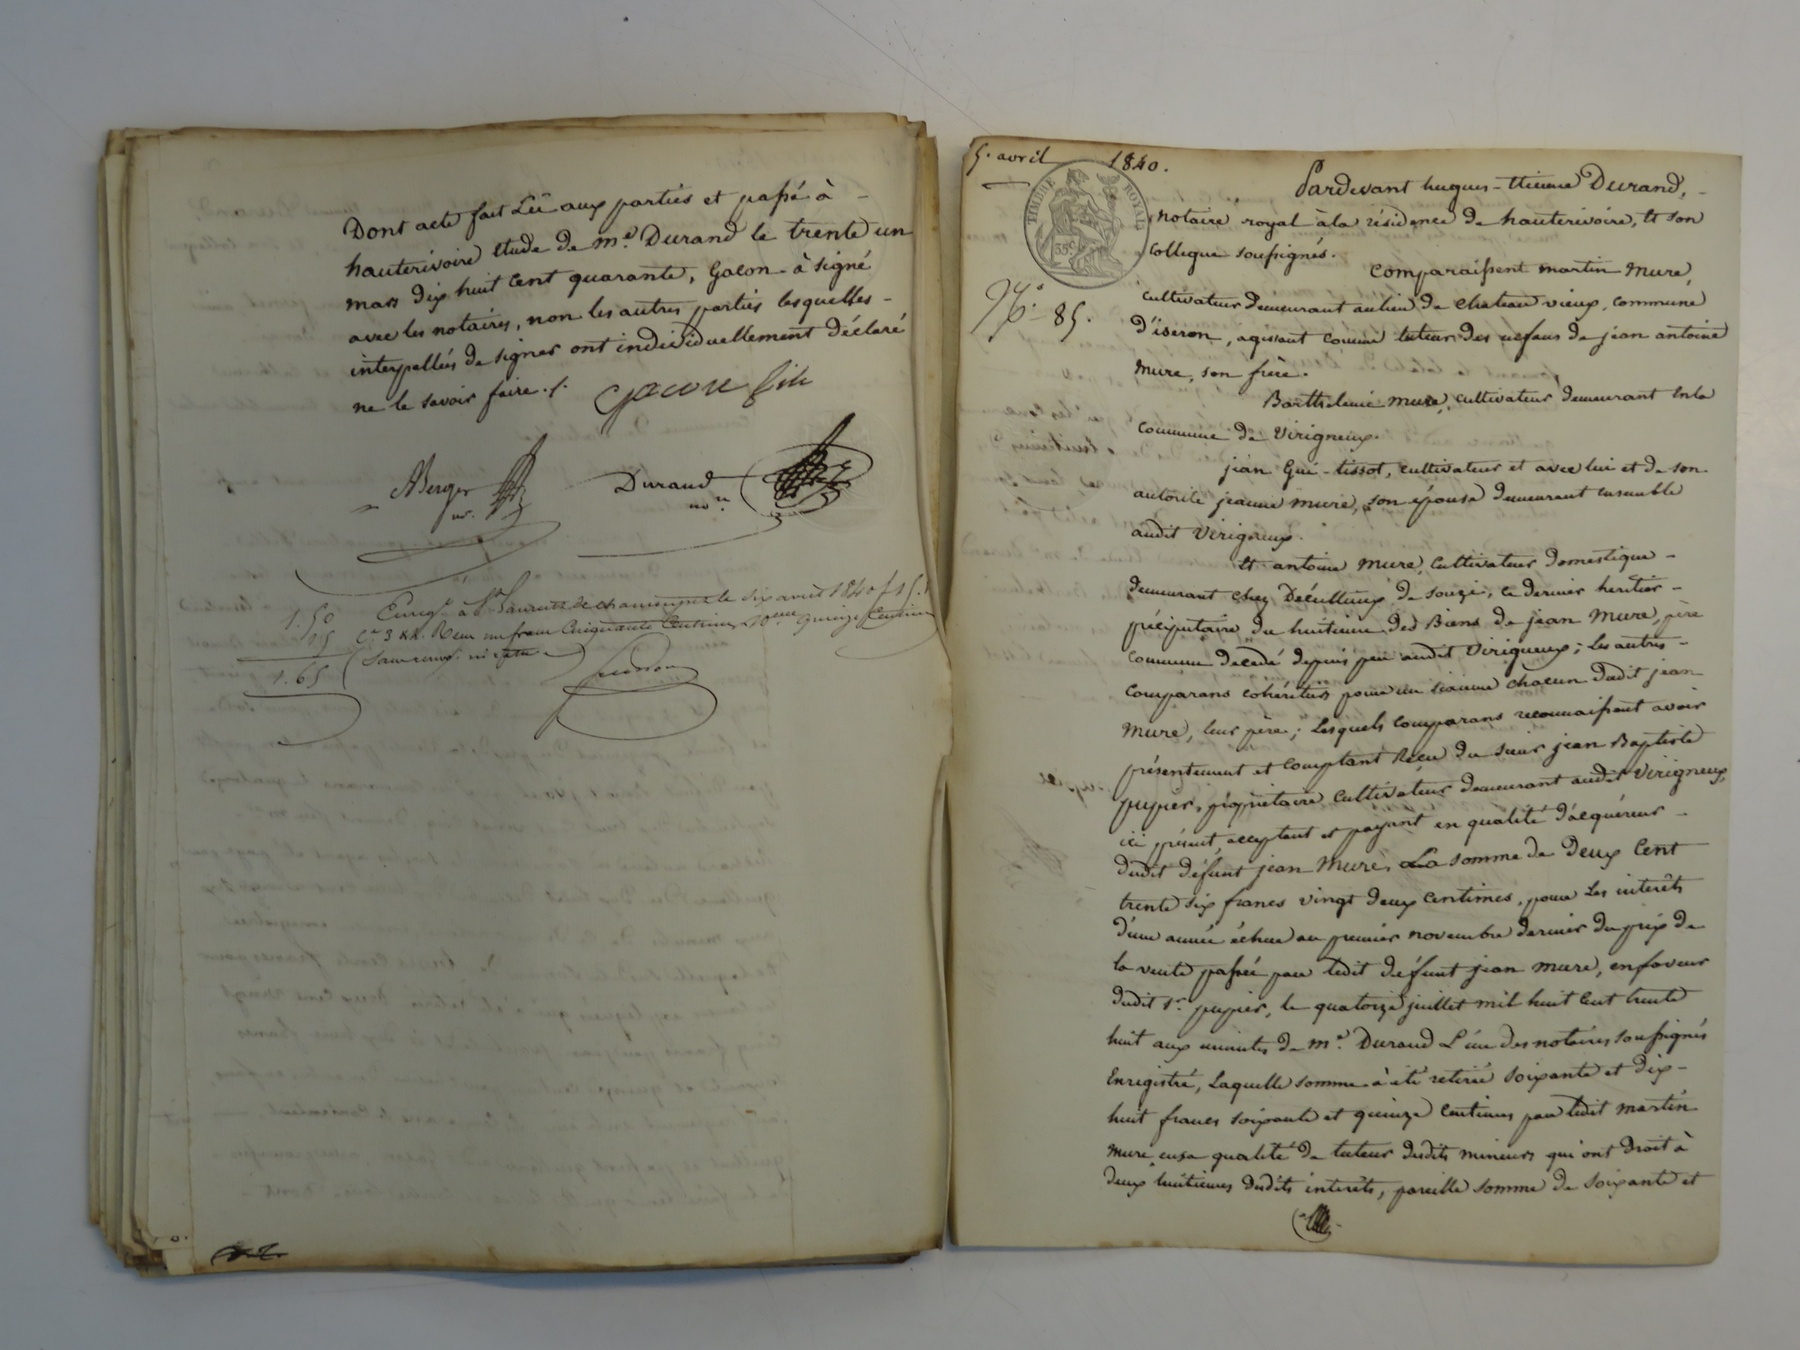 Dont acte fait Lu aux parties et passé à -
hauterivoire etude de me. Durand le trente un
mars dix huit cent quarante, Gacon à signé
avec les notaires, non les autres parties lesquelles -
interpellées de signer ont individuellement déclaré
ne le savoir faire ./.
Gacon fils
Berger
no.
Durand
no.re
1.50
15
1.65
Enregé. à St Laurent de chamousset le six avril 1840 f 15
c. 3 Reçu un franc cinquante centimes, 10eme quinze centimes
5. avril 1840.
TIMBRE ROYAL
35 c.
No. 85.
Pardevant hugues-ttienne Durand, -
notaire royal à la résidence de hauterivoire, et son
collegue soussignés.
Comparaissent martin mure,
cultivateur demeurant au lieu de chateau vieux, commune
d'iseron, agissant comme tuteur des enfans de jean antoine
mure, son frère.
Barthelemie mure, cultivateur demeurant en la
commune de virigneux.
jean Gui-tissot, cultivateur et avec lui et de son
autorité jeanne mure, son épouse demeurant ensemble
audit virigneux.
Et antoine mure, cultivateur domestique -
demeurant chez de souzi, ce dernier heritier -
préciputaire du huitieme des Biens de jean mure, père
commun decedé depuis peu audit virigneux; les autres -
comparans cohéritiers pour un chacun dudit jean
mure, leur père; Lesquels comparans reconnaissent avoir
présentement et comptant Reçu du sieur jean Baptiste
pupier, propriétaire cultivateur demeurant audit virigneux,
ici présent, acceptant et payant en qualité d'acquéreur -
dudit défunt jean mure, La somme de Deux Cent
trente six francs vingt deux centimes, pour les interêts
d'une année échue au premier novembre dernier du prix de
la vente passée par ledit défunt jean mure, en faveur
dudit sr. pupier, le quatorze juillet mil huit cent trente
huit aux minutes de me. Durand L'un des notaires soussignés
Enregistré, Laquelle somme à été retirée soixante et dix -
huit francs soixante et quinze centimes par ledit martin
mure en sa qualité de tuteur desdits mineurs qui ont droit à
deux huitiemes desdits interêts, pareille somme de soixante et